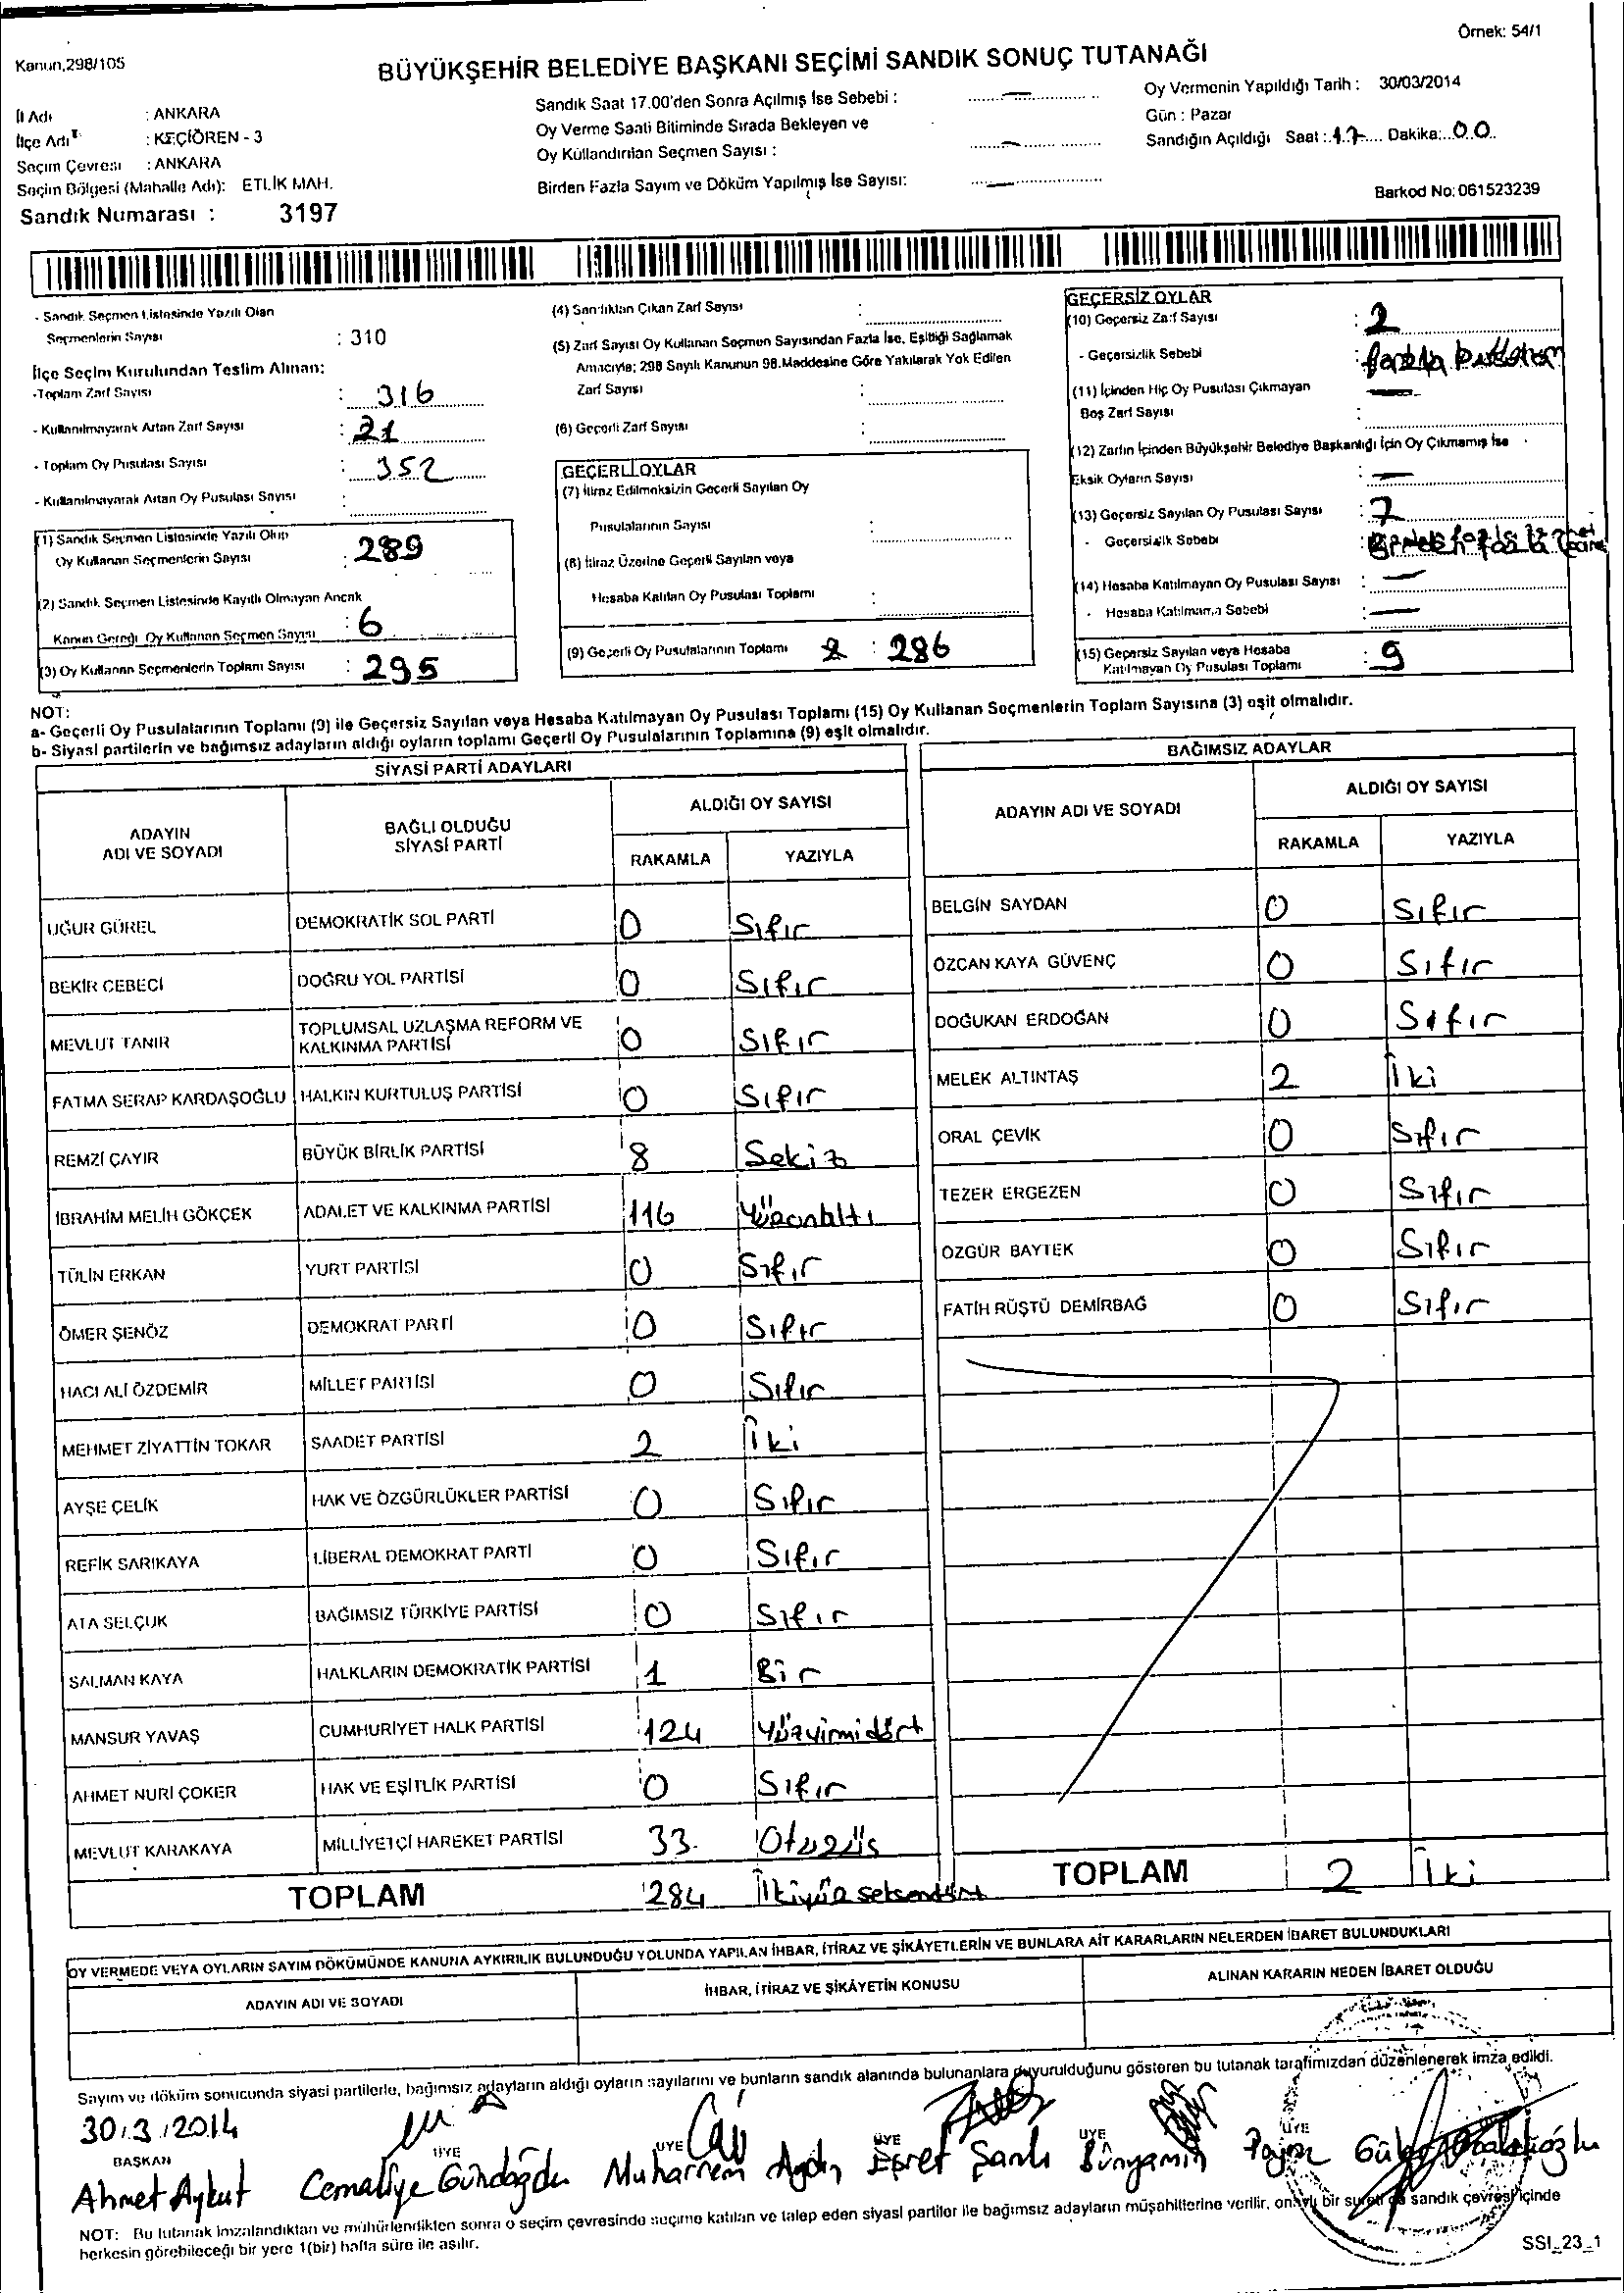 Örnek: 54/1
Kanun,298/105
BÜYÜKŞEHİR BELEDİYE BAŞKANI SEÇİMİ SANDIK SONUÇ TUTANAĞI
İl Adı : ANKARA
İlçe Adı : KEÇİÖREN - 3
Seçim Çevresi : ANKARA
Seçim Bölgesi (Mahalle Adı): ETLİK MAH.
Sandık Numarası : 3197
Sandık Saat 17.00'den Sonra Açılmış İse Sebebi : —
Oy Verme Saati Bitiminde Sırada Bekleyen ve
Oy Kullandırılan Seçmen Sayısı : —
Birden Fazla Sayım ve Döküm Yapılmış İse Sayısı: —
Oy Vermenin Yapıldığı Tarih : 30/03/2014
Gün : Pazar
Sandığın Açıldığı Saat : 17 Dakika: 00
Barkod No: 061523239
- Sandık Seçmen Listesinde Yazılı Olan
Seçmenlerin Sayısı : 310
İlçe Seçim Kurulundan Teslim Alınan:
-Toplam Zarf Sayısı : 316
- Kullanılmayarak Artan Zarf Sayısı : 21
- Toplam Oy Pusulası Sayısı : 352
- Kullanılmayarak Artan Oy Pusulası Sayısı :
(1) Sandık Seçmen Listesinde Yazılı Olup
Oy Kullanan Seçmenlerin Sayısı : 289
(2) Sandık Seçmen Listesinde Kayıtlı Olmayan Ancak
Kanun Gereği Oy Kullanan Seçmen Sayısı : 6
(3) Oy Kullanan Seçmenlerin Toplam Sayısı : 295
(4) Sandıktan Çıkan Zarf Sayısı :
(5) Zarf Sayısı Oy Kullanan Seçmen Sayısından Fazla İse, Eşitliği Sağlamak
Amacıyla; 298 Sayılı Kanunun 98.Maddesine Göre Yakılarak Yok Edilen
Zarf Sayısı :
(6) Geçerli Zarf Sayısı :
GEÇERLİ OYLAR
(7) İtiraz Edilmeksizin Geçerli Sayılan Oy
Pusulalarının Sayısı :
(8) İtiraz Üzerine Geçerli Sayılan veya
Hesaba Katılan Oy Pusulası Toplamı :
(9) Geçerli Oy Pusulalarının Toplamı : 286
GEÇERSİZ OYLAR
(10) Geçersiz Zarf Sayısı : 2
- Geçersizlik Sebebi : fazla
(11) İçinden Hiç Oy Pusulası Çıkmayan —
Boş Zarf Sayısı :
(12) Zarfın İçinden Büyükşehir Belediye Başkanlığı İçin Oy Çıkmamış İse
Eksik Oyların Sayısı : —
(13) Geçersiz Sayılan Oy Pusulası Sayısı : 7
- Geçersizlik Sebebi : Birden fazla
(14) Hesaba Katılmayan Oy Pusulası Sayısı : —
- Hesaba Katılmama Sebebi : —
(15) Geçersiz Sayılan veya Hesaba
Katılmayan Oy Pusulası Toplamı : 9
NOT:
a- Geçerli Oy Pusulalarının Toplamı (9) ile Geçersiz Sayılan veya Hesaba Katılmayan Oy Pusulası Toplamı (15) Oy Kullanan Seçmenlerin Toplam Sayısına (3) eşit olmalıdır.
b- Siyasi partilerin ve bağımsız adayların aldığı oyların toplamı Geçerli Oy Pusulalarının Toplamına (9) eşit olmalıdır.
SİYASİ PARTİ ADAYLARI
ADAYIN
ADI VE SOYADI
BAĞLI OLDUĞU
SİYASİ PARTİ
ALDIĞI OY SAYISI
RAKAMLA YAZIYLA
UĞUR GÜREL DEMOKRATİK SOL PARTİ 0 Sıfır
BEKİR CEBECİ DOĞRU YOL PARTİSİ 0 Sıfır
MEVLUT TANIR TOPLUMSAL UZLAŞMA REFORM VE
KALKINMA PARTİSİ 0 Sıfır
FATMA SERAP KARDAŞOĞLU HALKIN KURTULUŞ PARTİSİ 0 Sıfır
REMZİ ÇAYIR BÜYÜK BİRLİK PARTİSİ 8 Sekiz
İBRAHİM MELİH GÖKÇEK ADALET VE KALKINMA PARTİSİ 116 Yüzonaltı
TÜLİN ERKAN YURT PARTİSİ 0 Sıfır
ÖMER ŞENÖZ DEMOKRAT PARTİ 0 Sıfır
HACI ALİ ÖZDEMİR MİLLET PARTİSİ 0 Sıfır
MEHMET ZİYATTİN TOKAR SAADET PARTİSİ 2 İki
AYŞE ÇELİK HAK VE ÖZGÜRLÜKLER PARTİSİ 0 Sıfır
REFİK SARIKAYA LİBERAL DEMOKRAT PARTİ 0 Sıfır
ATA SELÇUK BAĞIMSIZ TÜRKİYE PARTİSİ 0 Sıfır
SALMAN KAYA HALKLARIN DEMOKRATİK PARTİSİ 1 Bir
MANSUR YAVAŞ CUMHURİYET HALK PARTİSİ 124 Yüzyirmidört
AHMET NURİ ÇOKER HAK VE EŞİTLİK PARTİSİ 0 Sıfır
MEVLUT KARAKAYA MİLLİYETÇİ HAREKET PARTİSİ 33 Otuzüç
TOPLAM 284 İkiyüz seksendört
BAĞIMSIZ ADAYLAR
ADAYIN ADI VE SOYADI
ALDIĞI OY SAYISI
RAKAMLA YAZIYLA
BELGİN SAYDAN 0 Sıfır
ÖZCAN KAYA GÜVENÇ 0 Sıfır
DOĞUKAN ERDOĞAN 0 Sıfır
MELEK ALTINTAŞ 2 İki
ORAL ÇEVİK 0 Sıfır
TEZER ERGEZEN 0 Sıfır
ÖZGÜR BAYTEK 0 Sıfır
FATİH RÜŞTÜ DEMİRBAĞ 0 Sıfır
TOPLAM 2 İki
OY VERMEDE VEYA OYLARIN SAYIM DÖKÜMÜNDE KANUNA AYKIRILIK BULUNDUĞU YOLUNDA YAPILAN İHBAR, İTİRAZ VE ŞİKÂYETLERİN VE BUNLARA AİT KARARLARIN NELERDEN İBARET BULUNDUKLARI
ADAYIN ADI VE SOYADI
İHBAR, İTİRAZ VE ŞİKÂYETİN KONUSU
ALINAN KARARIN NEDEN İBARET OLDUĞU
Sayım ve döküm sonucunda siyasi partilerle, bağımsız adayların aldığı oyların sayılarını ve bunların sandık alanında bulunanlara duyurulduğunu gösteren bu tutanak tarafımızdan düzenlenerek imza edildi.
30.3.2014
BAŞKAN ÜYE ÜYE ÜYE ÜYE ÜYE
Ahmet Aykut Cemaliye Gündoğdu Muharrem Aydın Şanlı Bünyamin
NOT: Bu tutanak imzalandıktan ve mühürlendikten sonra o seçim çevresinde seçime katılan ve talep eden siyasi partiler ile bağımsız adayların müşahitlerine verilir, onaylı bir sureti de sandık çevresi içinde
herkesin görebileceği bir yere 1(bir) hafta süre ile asılır.
SSI_23_1